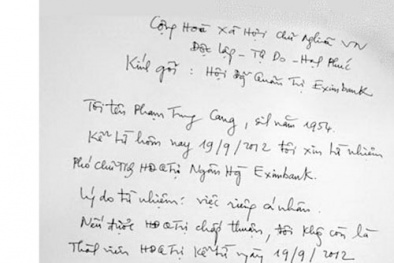 Cộng Hoà Xã Hội Chủ Nghĩa VN
Độc Lập - Tự Do - Hạnh Phúc
Kính gởi : Hội Đg Quản Trị Eximbank
Tôi tên Phạm Trung Cang, sil năm 1954.
Kể từ hôm nay 19/9/2012 tôi xin từ nhiệm
Phó chủ Tịg HĐQTrị Ngân Hg Eximbank.
Lý do từ nhiệm : việc riêng cá nhân.
Nếu được HĐQTrị chấp thuận, tôi khg còn là
Thàh viên HĐQTrị kể từ ngày 19/9/2012